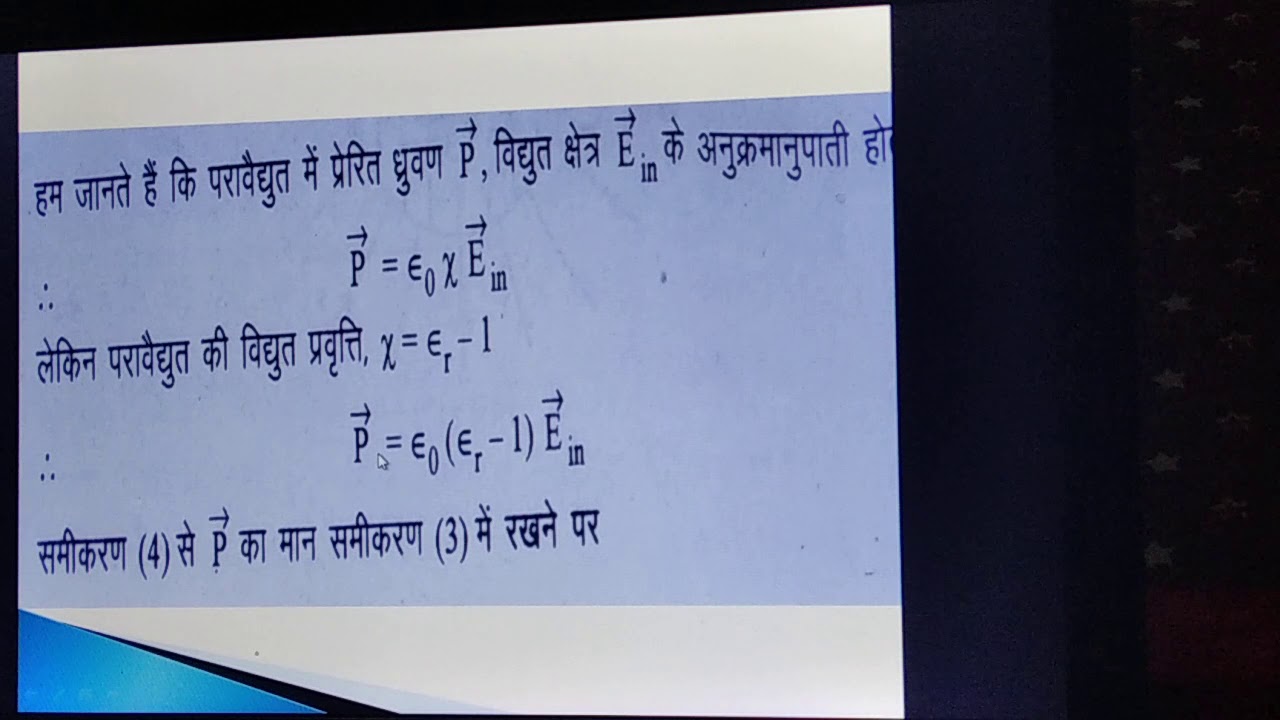 हम जानते हैं कि परावैद्युत में प्रेरित ध्रुवण P⃗, विद्युत क्षेत्र E⃗_in के अनुक्रमानुपाती
∴ P⃗ = ϵ₀ χ E⃗_in
लेकिन परावैद्युत की विद्युत प्रवृत्ति, χ = ϵ_r − 1
∴ P⃗ = ϵ₀ (ϵ_r − 1) E⃗_in
समीकरण (4) से P⃗ का मान समीकरण (3) में रखने पर